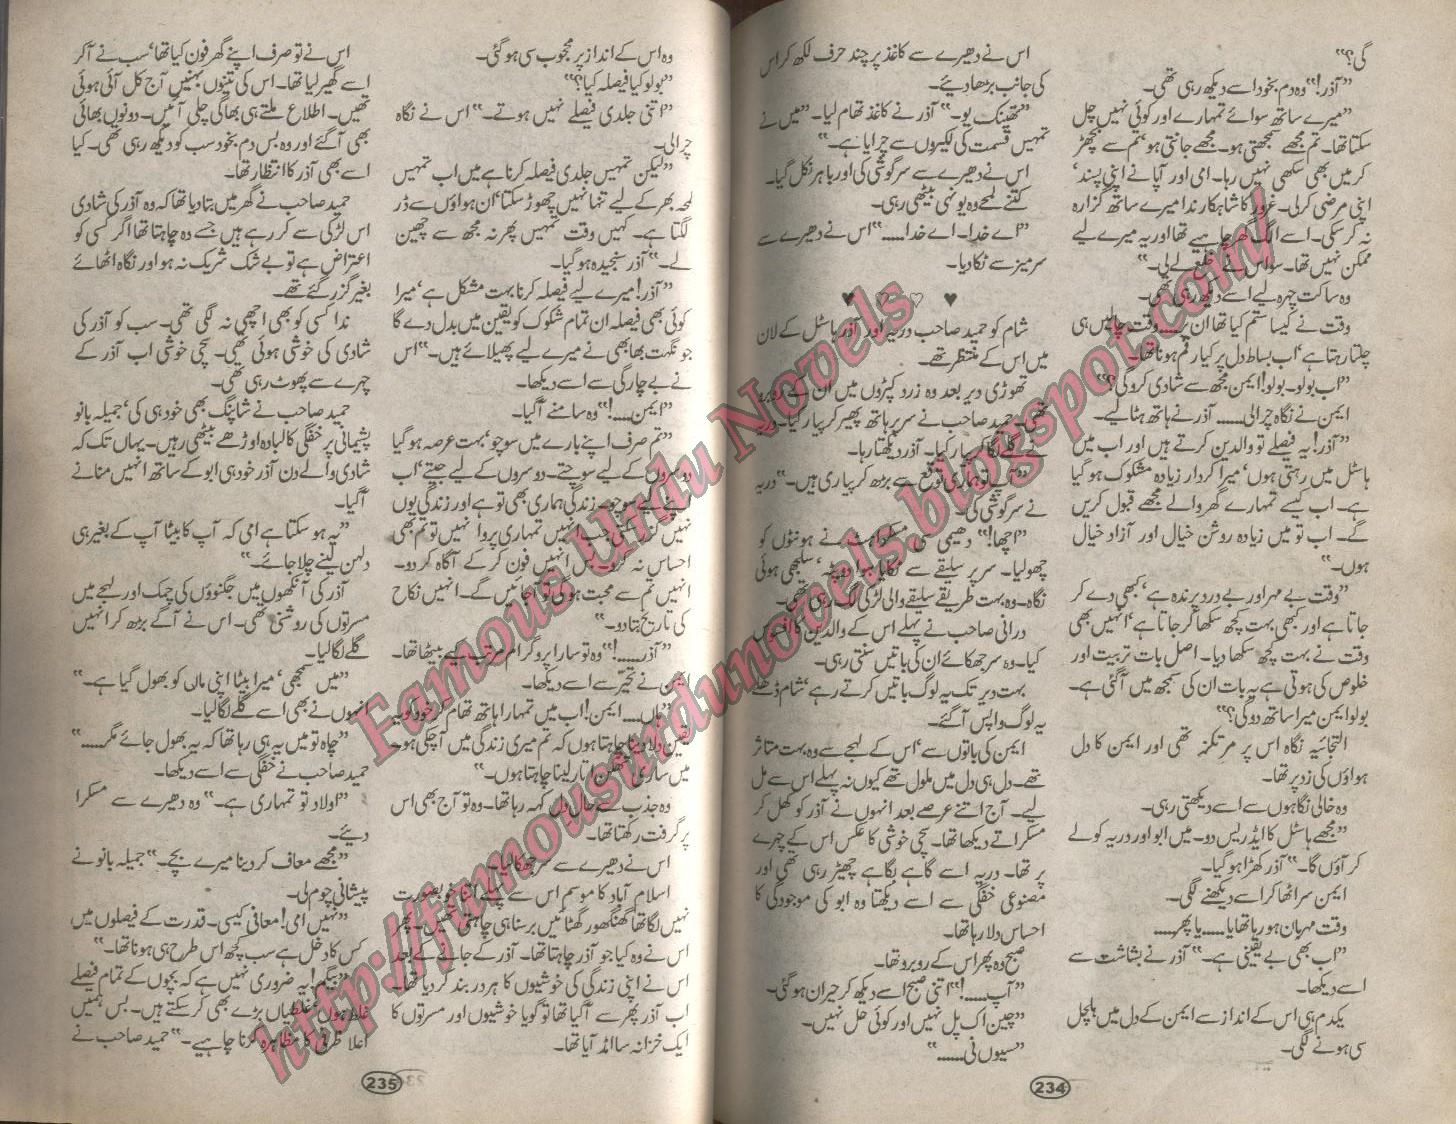 گی؟“
”آذر!“ وہ دم بخود اسے دیکھ رہی تھی۔
”میرے ساتھ سوائے تمہارے اور کوئی نہیں چل
سکتا تھا۔ تم مجھے سمجھتی ہو۔ مجھے جانتی ہو، تم سے بچھڑ
کر میں بھی سکھی نہیں رہا۔ امی اور آپا نے اپنی پسند،
اپنی مرضی کرلی۔ غرور کا شاہکار ندا میرے ساتھ گزارہ
نہ کرسکی۔ اسے الگ گھر چاہیے تھا اور یہ میرے لیے
ممکن نہیں تھا۔ سو اس نے خلع لے لی۔“
وہ ساکت چہرہ لیے اسے دیکھ رہی تھی۔
وقت نے کیسا ستم کیا تھا ان پر..... وقت چالیں ہی
چلتا رہتا ہے، اب بساط دل پر کیا رقم ہونا تھا۔
”اب بولو۔ بولو! ایمن مجھ سے شادی کرو گی؟“
ایمن نے نگاہ چرالی..... آذر نے ہاتھ ہٹالیے۔
”آذر! یہ فیصلے تو والدین کرتے ہیں اور اب میں
ہاسٹل میں رہتی ہوں، میرا کردار زیادہ مشکوک ہوگیا
ہے۔ اب کیسے تمہارے گھر والے مجھے قبول کریں
گے۔ اب تو میں زیادہ روشن خیال اور آزاد خیال
ہوں۔“
”وقت بے مہر اور بے درد پرندہ ہے، کبھی دے کر
جاتا ہے اور کبھی بہت کچھ سکھا کر جاتا ہے، انہیں بھی
وقت نے بہت کچھ سکھا دیا۔ اصل بات تربیت اور
خلوص کی ہوتی ہے یہ بات ان کی سمجھ میں آگئی ہے۔
بولو ایمن میرا ساتھ دو گی؟“
التجائیہ نگاہ اس پر مرتکز تھی اور ایمن کا دل
ہواؤں کی زد پر تھا۔
وہ خالی نگاہوں سے اسے دیکھتی رہی۔
”مجھے ہاسٹل کا ایڈریس دو۔ میں ابو اور دریہ کو لے
کر آؤں گا۔“ آذر کھڑا ہوگیا۔
ایمن سر اٹھا کر اسے دیکھنے لگی۔
وقت مہربان ہو رہا تھا یا..... یا پھر.....
”اب بھی بے یقینی ہے۔“ آذر نے بشاشت سے
اسے دیکھا۔
یکدم ہی اس کے انداز سے ایمن کے دل میں ہلچل
سی ہونے لگی۔
اس نے دھیرے سے کاغذ پر چند حرف لکھ کر اس
کی جانب بڑھا دیے۔
”تھینک یو۔“ آذر نے کاغذ تھام لیا۔ ”میں نے
تمہیں قسمت کی لکیروں سے چرایا ہے۔“
اس نے دھیرے سے سرگوشی کی اور باہر نکل گیا۔
کتنے لمحے وہ یونہی بیٹھی رہی۔
”اے خدا۔ اے خدا.....“ اس نے دھیرے سے
سر میز سے ٹکا دیا۔
♥ ♥ ♥ ♥
شام کو حمید صاحب دریہ اور آذر ہاسٹل کے لان
میں اس کے منتظر تھے۔
تھوڑی دیر بعد وہ زرد کپڑوں میں ان کے روبرو
تھی۔ حمید صاحب نے سر پر ہاتھ پھیر کر پیار کیا۔ دریہ
نے گلے لگا کر پیار کیا۔ آذر دیکھتا رہا۔
”وہ آپ تو ہماری توقع سے بڑھ کر پیاری ہیں۔“ دریہ
نے سرگوشی کی۔
”اچھا!“ دھیمی سی مسکراہٹ نے ہونٹوں کو
چھولیا۔ سر پر سلیقے سے ٹکایا ہوا دوپٹہ، سلجھی ہوئی
نگاہ۔ وہ بہت طریقے سلیقے والی لڑکی لگ رہی تھی۔
درانی صاحب نے پہلے اس کے والدین کا افسوس
کیا۔ وہ سر جھکائے ان کی باتیں سنتی رہی۔
بہت دیر تک یہ لوگ باتیں کرتے رہے، شام ڈھلے
یہ لوگ واپس آگئے۔
ایمن کی باتوں سے، اس کے لہجے سے وہ بہت متاثر
تھے۔ دل ہی دل میں ملول تھے کیوں نہ پہلے اس سے مل
لیے۔ آج اتنے عرصے بعد انہوں نے آذر کو کھل کر
مسکراتے دیکھا تھا۔ سچی خوشی کا عکس اس کے چہرے
پر تھا۔ دریہ اسے گاہے بگاہے چھیڑ رہی تھی اور
مصنوعی خفگی سے اسے دیکھتا وہ ابو کی موجودگی کا
احساس دلا رہا تھا۔
صبح وہ پھر اس کے روبرو تھا۔
”آپ.....!“ اتنی صبح اسے دیکھ کر حیران ہوگئی۔
”چین اک پل نہیں اور کوئی حل نہیں۔
”سیوں نی.....“
234
وہ اس کے انداز پر محجوب سی ہوگئی۔
”بولو کیا فیصلہ کیا؟“
”اتنی جلدی فیصلے نہیں ہوتے۔“ اس نے نگاہ
چرالی۔
”لیکن تمہیں جلدی فیصلہ کرنا ہے میں اب تمہیں
لمحہ بھر کے لیے تنہا نہیں چھوڑ سکتا، ان ہواؤں سے ڈر
لگتا ہے۔ کہیں وقت تمہیں پھر نہ مجھ سے چھین
لے۔“ آذر سنجیدہ ہوگیا۔
”آذر! میرے لیے فیصلہ کرنا بہت مشکل ہے، میرا
کوئی بھی فیصلہ ان تمام شکوک کو یقین میں بدل دے گا
جو نگہت بھابھی نے میرے لیے پھیلائے ہیں۔“ اس
نے بے چارگی سے اسے دیکھا۔
”ایمن....!“ وہ سامنے آگیا۔
”تم صرف اپنے بارے میں سوچو، بہت عرصہ ہوگیا
دوسروں کے لیے سوچتے۔ دوسروں کے لیے جیتے، اب
اپنے لیے سوچو۔ زندگی ہماری بھی تو ہے اور زندگی یوں
نہیں گزر سکتی جب انہیں تمہاری پروا نہیں تو تم بھی
احساس نہ کرو۔ بس انہیں فون کر کے آگاہ کر دو۔
انہیں تم سے محبت ہوگی تو آجائیں گے۔ انہیں نکاح
کی تاریخ بتا دو۔“
”آذر.....!“ وہ تو سارا پروگرام مرتب کیے بیٹھا تھا۔
ایمن نے تحیر سے اسے دیکھا۔
”ہاں.... ایمن! اب میں تمہارا ہاتھ تھام کر خود کو یہ
یقین دلا دینا چاہتا ہوں کہ تم میری زندگی میں آچکی ہو۔
میں ساری تھکن اتار لینا چاہتا ہوں۔“
وہ جذب سے حال دل کہہ رہا تھا۔ وہ تو آج بھی اس
پر گرفت رکھتا تھا۔
اس نے دھیرے سے سر جھکا لیا۔
اسلام آباد کا موسم اس سے پہلے اتنا خوبصورت
نہیں لگا تھا گھنگھور گھٹائیں برسنا ہی چاہتی تھیں۔ پھر
اس نے وہ کیا جو آذر چاہتا تھا۔ آذر کے جانے کے بعد
اس نے اپنی زندگی کی خوشیوں کا ہر در بند کر دیا تھا۔
اب آذر پھر سے آگیا تھا تو گویا خوشیوں اور مسرتوں کا
ایک خزانہ سا امڈ آیا تھا۔
اس نے تو صرف اپنے گھر فون کیا تھا، سب نے آکر
اسے گھیر لیا تھا۔ اس کی تینوں بہنیں آج کل آئی ہوئی
تھیں۔ اطلاع ملتے ہی بھاگی چلی آئیں۔ دونوں بھائی
بھی آگئے اور وہ بس دم بخود سب کو دیکھ رہی تھی۔ کیا
اسے بھی آذر کا انتظار تھا۔
حمید صاحب نے گھر میں بتا دیا تھا کہ وہ آذر کی شادی
اس لڑکی سے کر رہے ہیں جسے وہ چاہتا تھا اگر کسی کو
اعتراض ہے تو بے شک شریک نہ ہو اور نگاہ اٹھائے
بغیر گزر گئے تھے۔
ندا کسی کو بھی اچھی نہ لگی تھی۔ سب کو آذر کی
شادی کی خوشی ہوئی تھی۔ سچی خوشی اب آذر کے
چہرے سے پھوٹ رہی تھی۔
حمید صاحب نے شاپنگ بھی خود ہی کی، جمیلہ بانو
پشیمانی پر خفگی کا لبادہ اوڑھے بیٹھی رہیں۔ یہاں تک کہ
شادی والے دن آذر خود ہی ابو کے ساتھ انہیں منانے
آگیا۔
”یہ ہو سکتا ہے امی کہ آپ کا بیٹا آپ کے بغیر ہی
دلہن لینے چلا جائے۔“
آذر کی آنکھوں میں جگنوؤں کی چمک اور لہجے میں
مسرتوں کی روشنی تھی۔ اس نے آگے بڑھ کر انہیں
گلے لگا لیا۔
”میں سمجھی، میرا بیٹا اپنی ماں کو بھول گیا ہے۔“
انہوں نے بھی اسے گلے لگا لیا۔
”چاہ تو میں یہ ہی رہا تھا کہ یہ بھول جائے مگر.....“
حمید صاحب نے خفگی سے اسے دیکھا۔
”اولاد تو تمہاری ہے۔“ وہ دھیرے سے مسکرا
دیئے۔
”مجھے معاف کر دینا میرے بچے۔“ جمیلہ بانو نے
پیشانی چوم لی۔
”نہیں امی! معافی کیسی۔ قدرت کے فیصلوں میں
کس کا دخل ہے سب کچھ اس طرح ہی ہونا تھا۔“
”بیگم! یہ ضروری نہیں ہے کہ بچوں کے تمام فیصلے
غلط ہوں، غلطیاں بڑے بھی کر سکتے ہیں۔ بس ہمیں
اعلا ظرفی کا مظاہرہ کرنا چاہیے۔“ حمید صاحب نے
235
Famous Urdu Novels
http://famousurdunovels.blogspot.com/